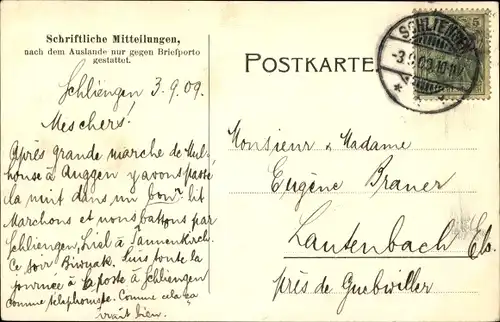 Schriftliche Mitteilungen,
nach dem Auslande nur gegen Briefporto
gestattet.
POSTKARTE.
SCHLIENGEN
-3.9.09.10-11V
5
Schliengen 3.9.09.
Meschers!
Après grande marche de Mul-
house à Auggen y avons passé
la nuit dans un bon lit
Marchons et nous battons par
Schliengen, Liel à Tannenkirch.
Ce soir Biwuak. Suis toute la
journée à la poste à Schliengen
comme telephoniste. Comme cela ça
irait bien.
Monsieur & Madame
Eugène Braner
Lautenbach Els.
près de Guebwiller